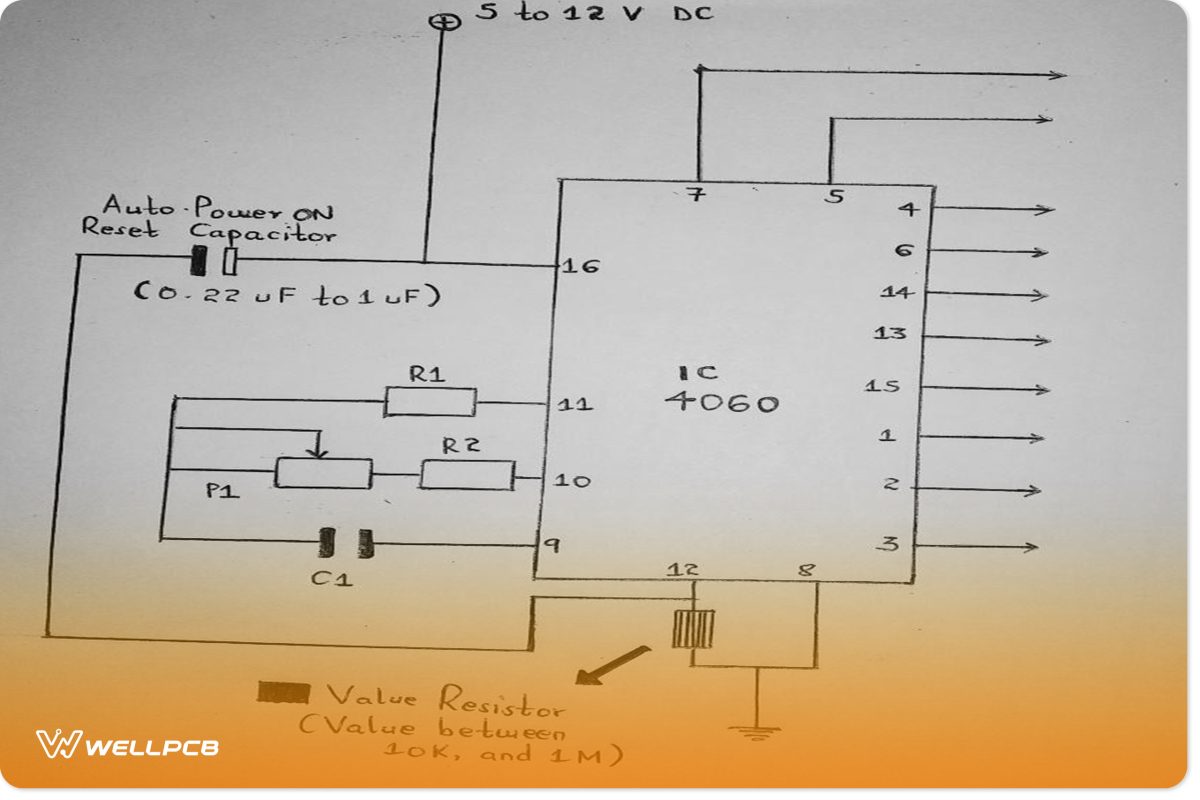 5 to 12 V DC
7
5
4
Auto-Power ON
Reset Capacitor
6
16
(0.22 uF to 1 uF)
14
13
R1
IC
4060
15
11
1
R2
10
P1
2
9
3
C1
12
8
Value Resistor
(Value between
10K, and 1M)
WELLPCB